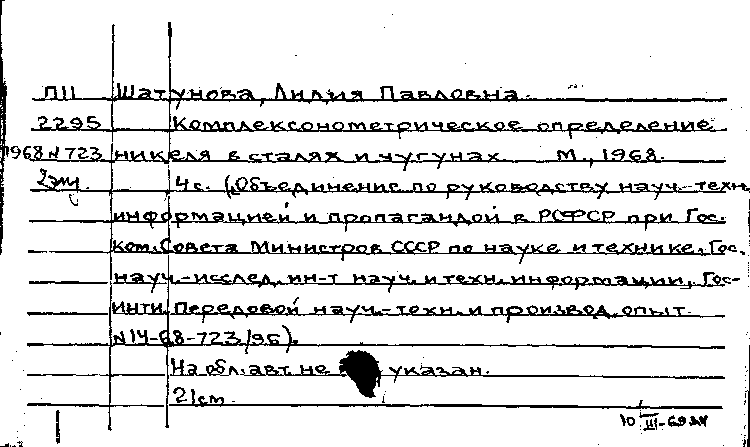 П11 Шатунова, Лилия Павловна.
2295 Комплексонометрическое определение
1968 N 723 никеля в сталях и чугунах. М., 1968.
2 экз. 4 с. (Объединение по руководству науч.-техн.
информацией и пропагандой в РСФСР при Гос.
ком. Совета Министров СССР по науке и технике. Гос.
науч.-исслед. ин-т науч. и техн. информации, Гос-
инти. Передовой науч.-техн. и производ. опыт.
N 14-68-723/96).
На обл. авт. не указан.
21 cm
10 III-69